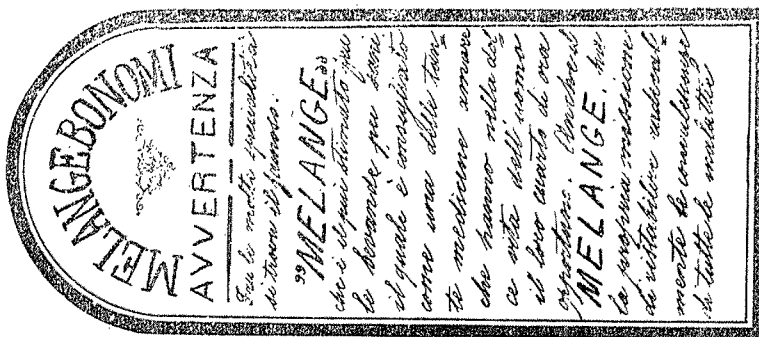 MELANGE BONOMI
AVVERTENZA
Fra le molte specialità
si trova il famoso:
"MELANGE"
che è il più stimato fra
le bevande più sane
il quale è consigliato
come una delle tan=
te medicine amare
che hanno nella dol
ce vita dell'uomo
il loro quarto di ora
opportuno. Anche il
MELANGE. ha
la propria missione
di ristabilire radical=
mente le conseguenze
di tutte le malattie